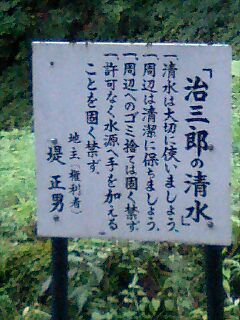 「治三郎の清水」
「清水は大切に使いましょう。
「周辺は清潔に保ちましょう。
「周辺へのゴミ捨ては固く禁ず。
「許可なく水源へ手を加える
ことを固く禁ず。
地主(権利者)
堤 正男